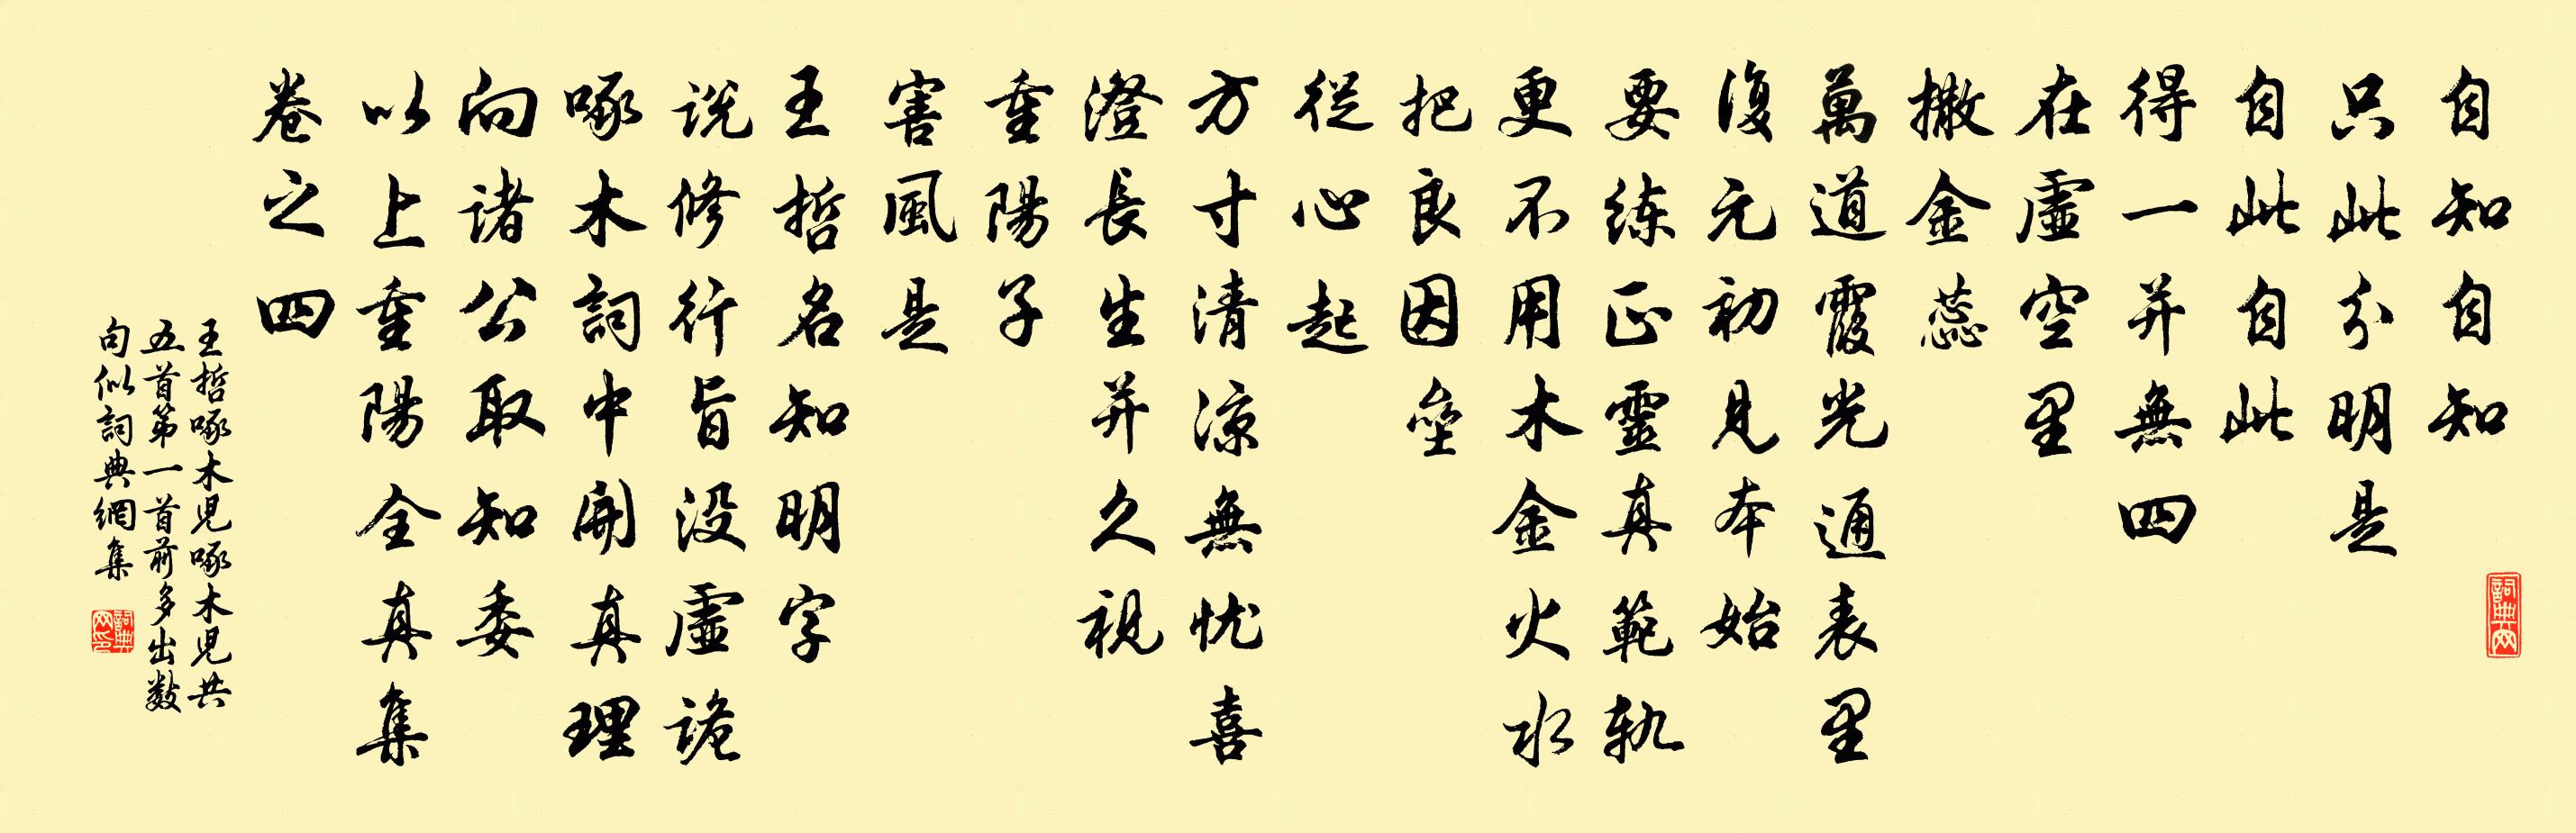 自知自知
只此分明是
自此自此
得一并無四
在虛空里
撒金蕊
萬道霞光通表里
復元初見本始
要练正靈真範軌
更不用木金火水
把良因壘
從心起
方寸清涼無忧喜
澄長生并久視
重陽子
害風是
王哲名知明字
说修行旨没虛诡
啄木詞中開真理
向诸公取知委
以上重陽全真集
卷之四
王哲啄木児啄木児共
五首第一首前多出数
句似詞典網集
詞典网
詞典网印